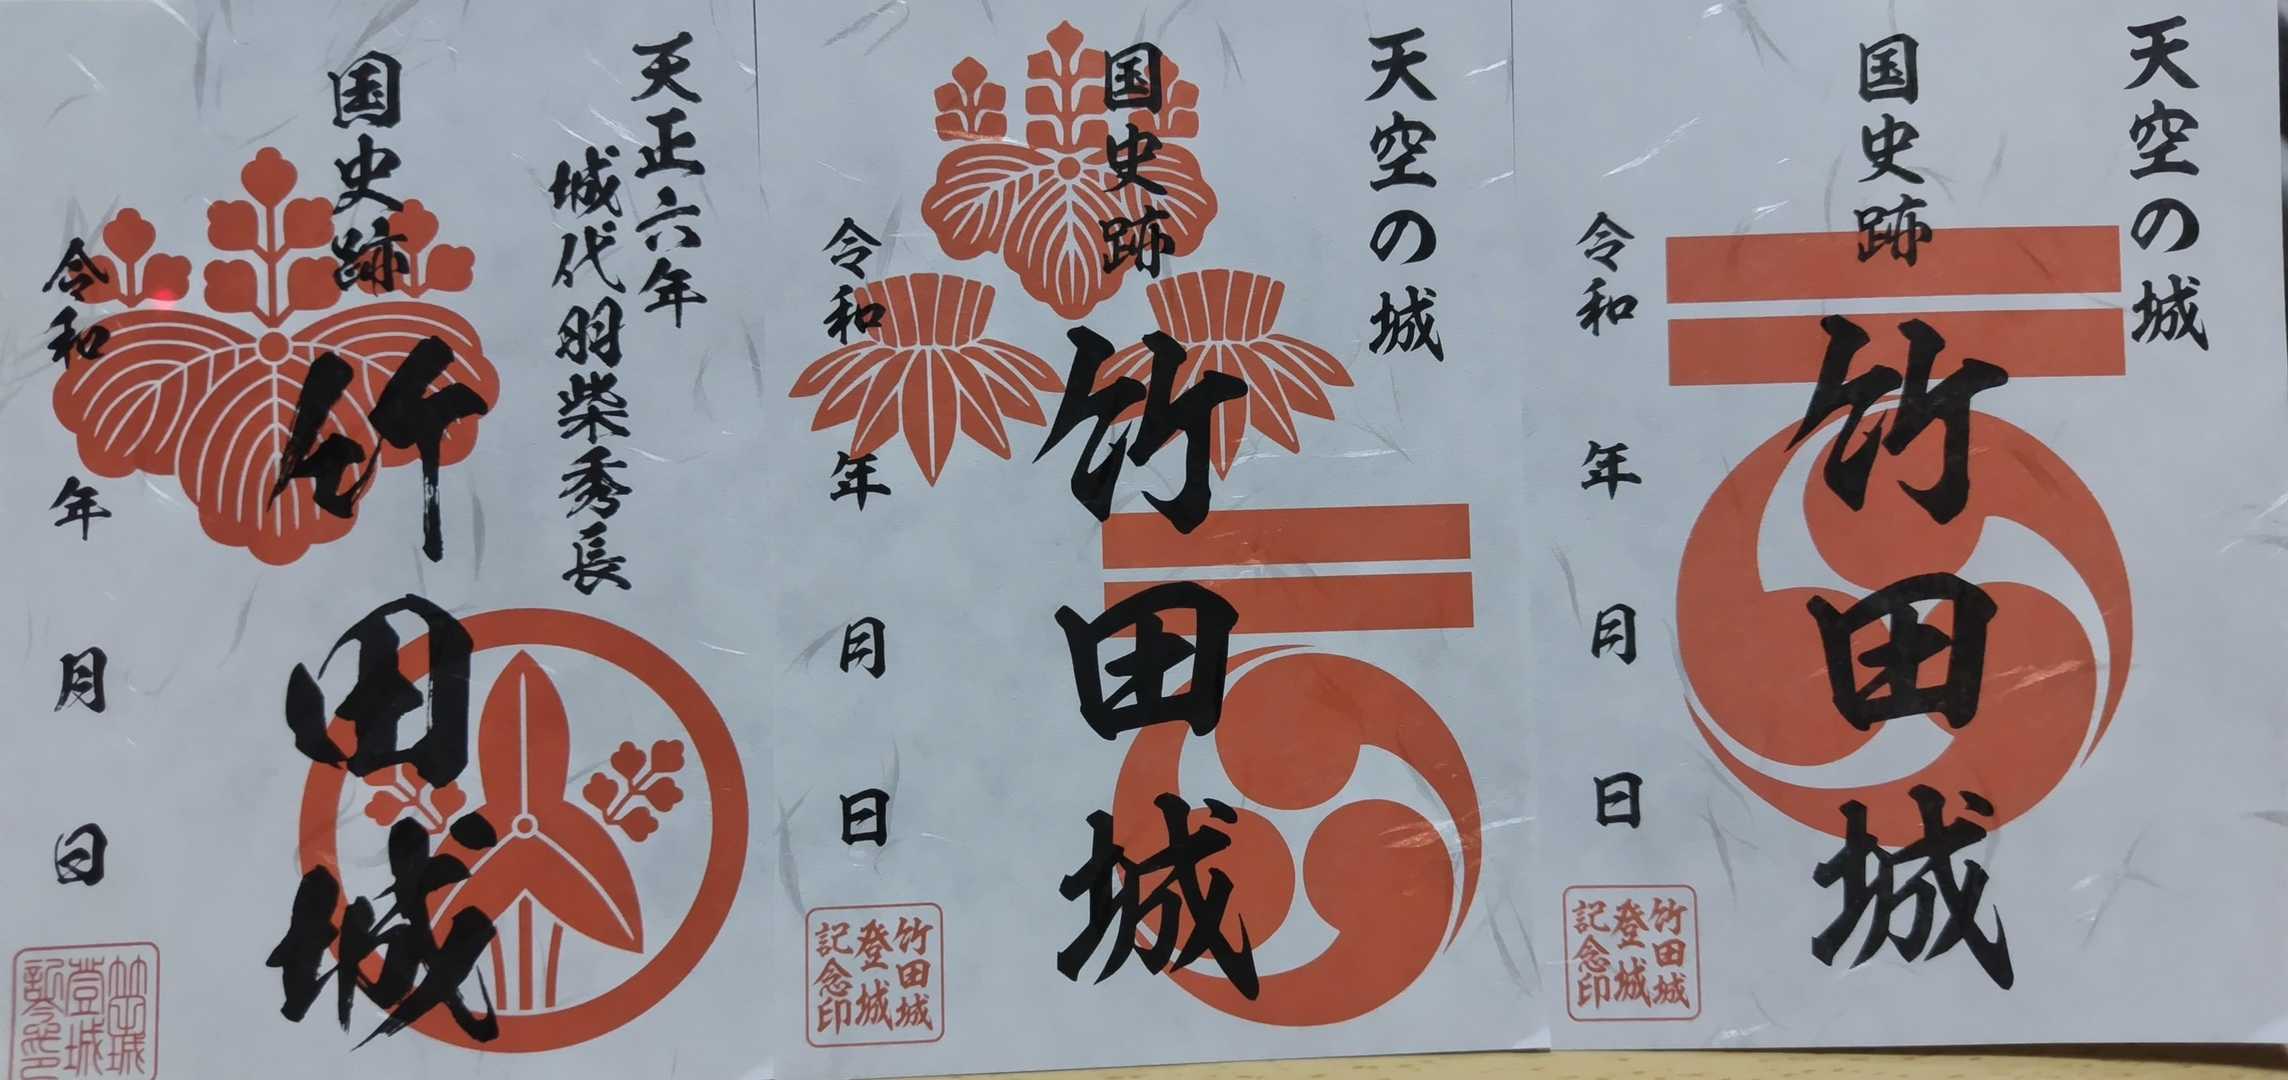 天正六年
城代羽柴秀長
国史跡
竹田城
令和 年 月 日
登城
天空の城
国史跡
竹田城
令和 年 月 日
竹田城
登城
記念印
天空の城
国史跡
竹田城
令和 年 月 日
竹田城
登城
記念印